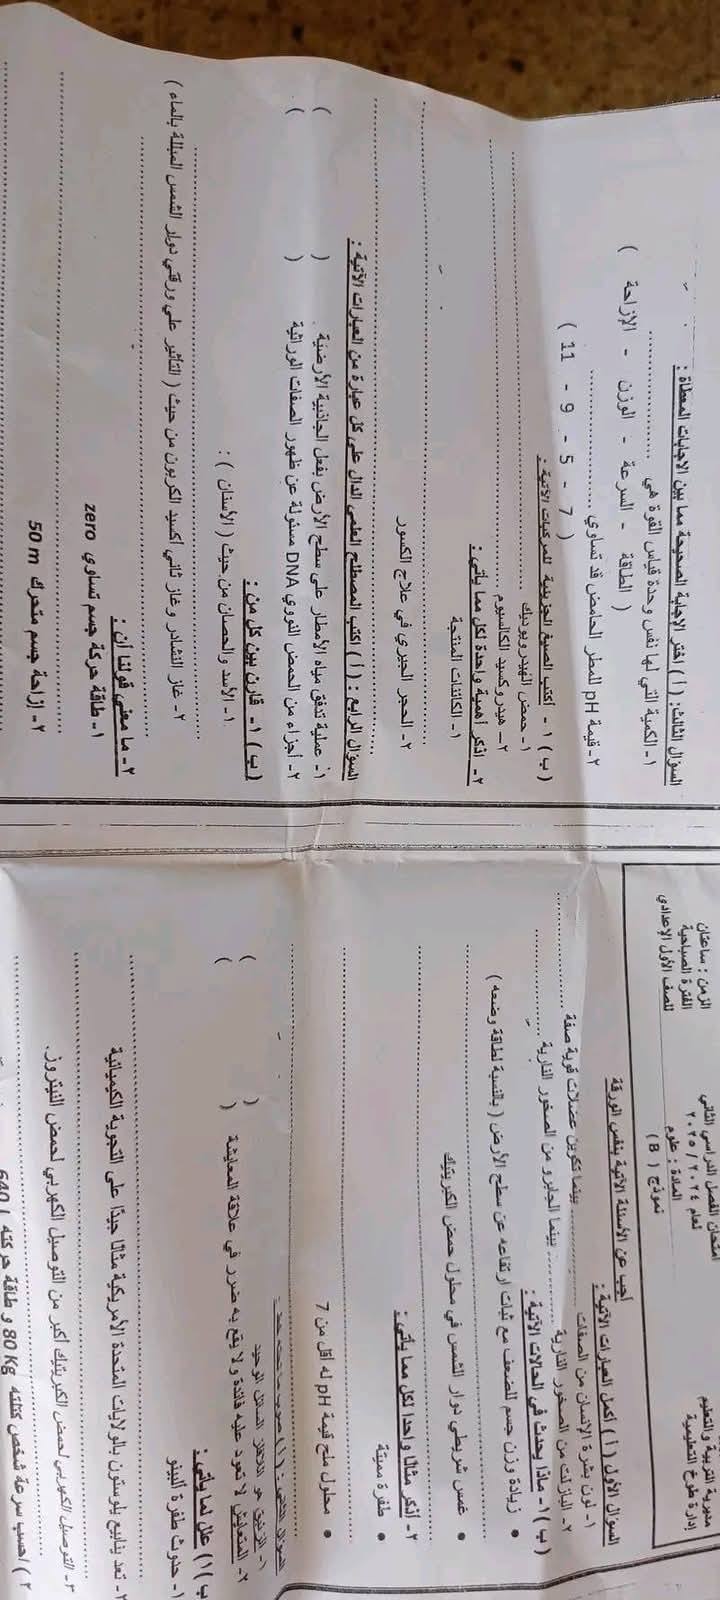 مديرية التربية والتعليم
إدارة طوخ التعليمية
امتحان الفصل الدراسي الثاني
لعام ٢٠٢٤ / ٢٠٢٥
المادة : علوم
نموذج ( B )
الزمن : ساعتان
الفترة الصباحية
للصف الأول الإعدادي
أجب عن الأسئلة الآتية بنفس الورقة
السؤال الأول ( أ ) أكمل العبارات الآتية :
١- لون بشرة الإنسان من الصفات .................... بينما تكوين عضلات قوية صفة ....................
٢- البازلت من الصخور النارية .................... بينما الجابرو من الصخور النارية ....................
( ب ) ١- ماذا يحدث في الحالات الآتية :
• زيادة وزن جسم للضعف مع ثبات ارتفاعه عن سطح الأرض ( بالنسبة لطاقة وضعه )
• غمس شريطي دوار الشمس في محلول حمض الكبريتيك
٢- أذكر مثالًا واحدًا لكل مما يأتي :
• طفرة مميتة
• محلول ملح قيمة pH له أقل من 7
السؤال الثاني : ( أ ) صوب ما تحته خط :
١- الزئبق هو اللافلز السائل الوحيد ( )
٢- المتعايش لا تعود عليه فائدة ولا يقع به ضرر في علاقة المعايشة ( )
ب ) ١) علل لما يأتي :
١- حدوث طفرة ألبينو
٢- تعد ينابيع يلوستون بالولايات المتحدة الأمريكية مثالًا جيدًا على التجوية الكيميائية
٣- التوصيل الكهربي لحمض الكبريتيك أكبر من التوصيل الكهربي لحمض النيتروز.
٢ ) احسب سرعة شخص كتلته 80 Kg و طاقة حركته 640 J
السؤال الثالث: ( أ ) اختر الإجابة الصحيحة مما بين الإجابات المعطاة :
١- الكمية التي لها نفس وحدة قياس القوة هي ....................
( الطاقة - السرعة - الوزن - الإزاحة )
٢- قيمة pH للمطر الحامض قد تساوي ....................
( 7 - 5 - 9 - 11 )
( ب ) ١ - اكتب الصيغ الجزيئية للمركبات الآتية :
١- حمض الهيدروبروميك ....................
٢- هيدروكسيد الكالسيوم ....................
٢- اذكر أهمية واحدة لكل مما يأتي :
١- الكائنات المنتجة
٢- الحجر الجيري في علاج الكسور
السؤال الرابع : ( أ ) اكتب المصطلح العلمي الدال على كل عبارة من العبارات الآتية :
١- عملية تدفق مياه الأمطار على سطح الأرض بفعل الجاذبية الأرضية ( )
٢- أجزاء من الحمض النووي DNA مسئولة عن ظهور الصفات الوراثية ( )
( ب ) ١- قارن بين كل من :
١- الأسد والحصان من حيث ( الأسنان ) :
٢- غاز النشادر و غاز ثاني أكسيد الكربون من حيث ( التأثير علي ورقتي دوار الشمس المبللة بالماء )
٢- ما معنى قولنا أن :
١- طاقة حركة جسم تساوي zero
٢- إزاحة جسم متحرك 50 m